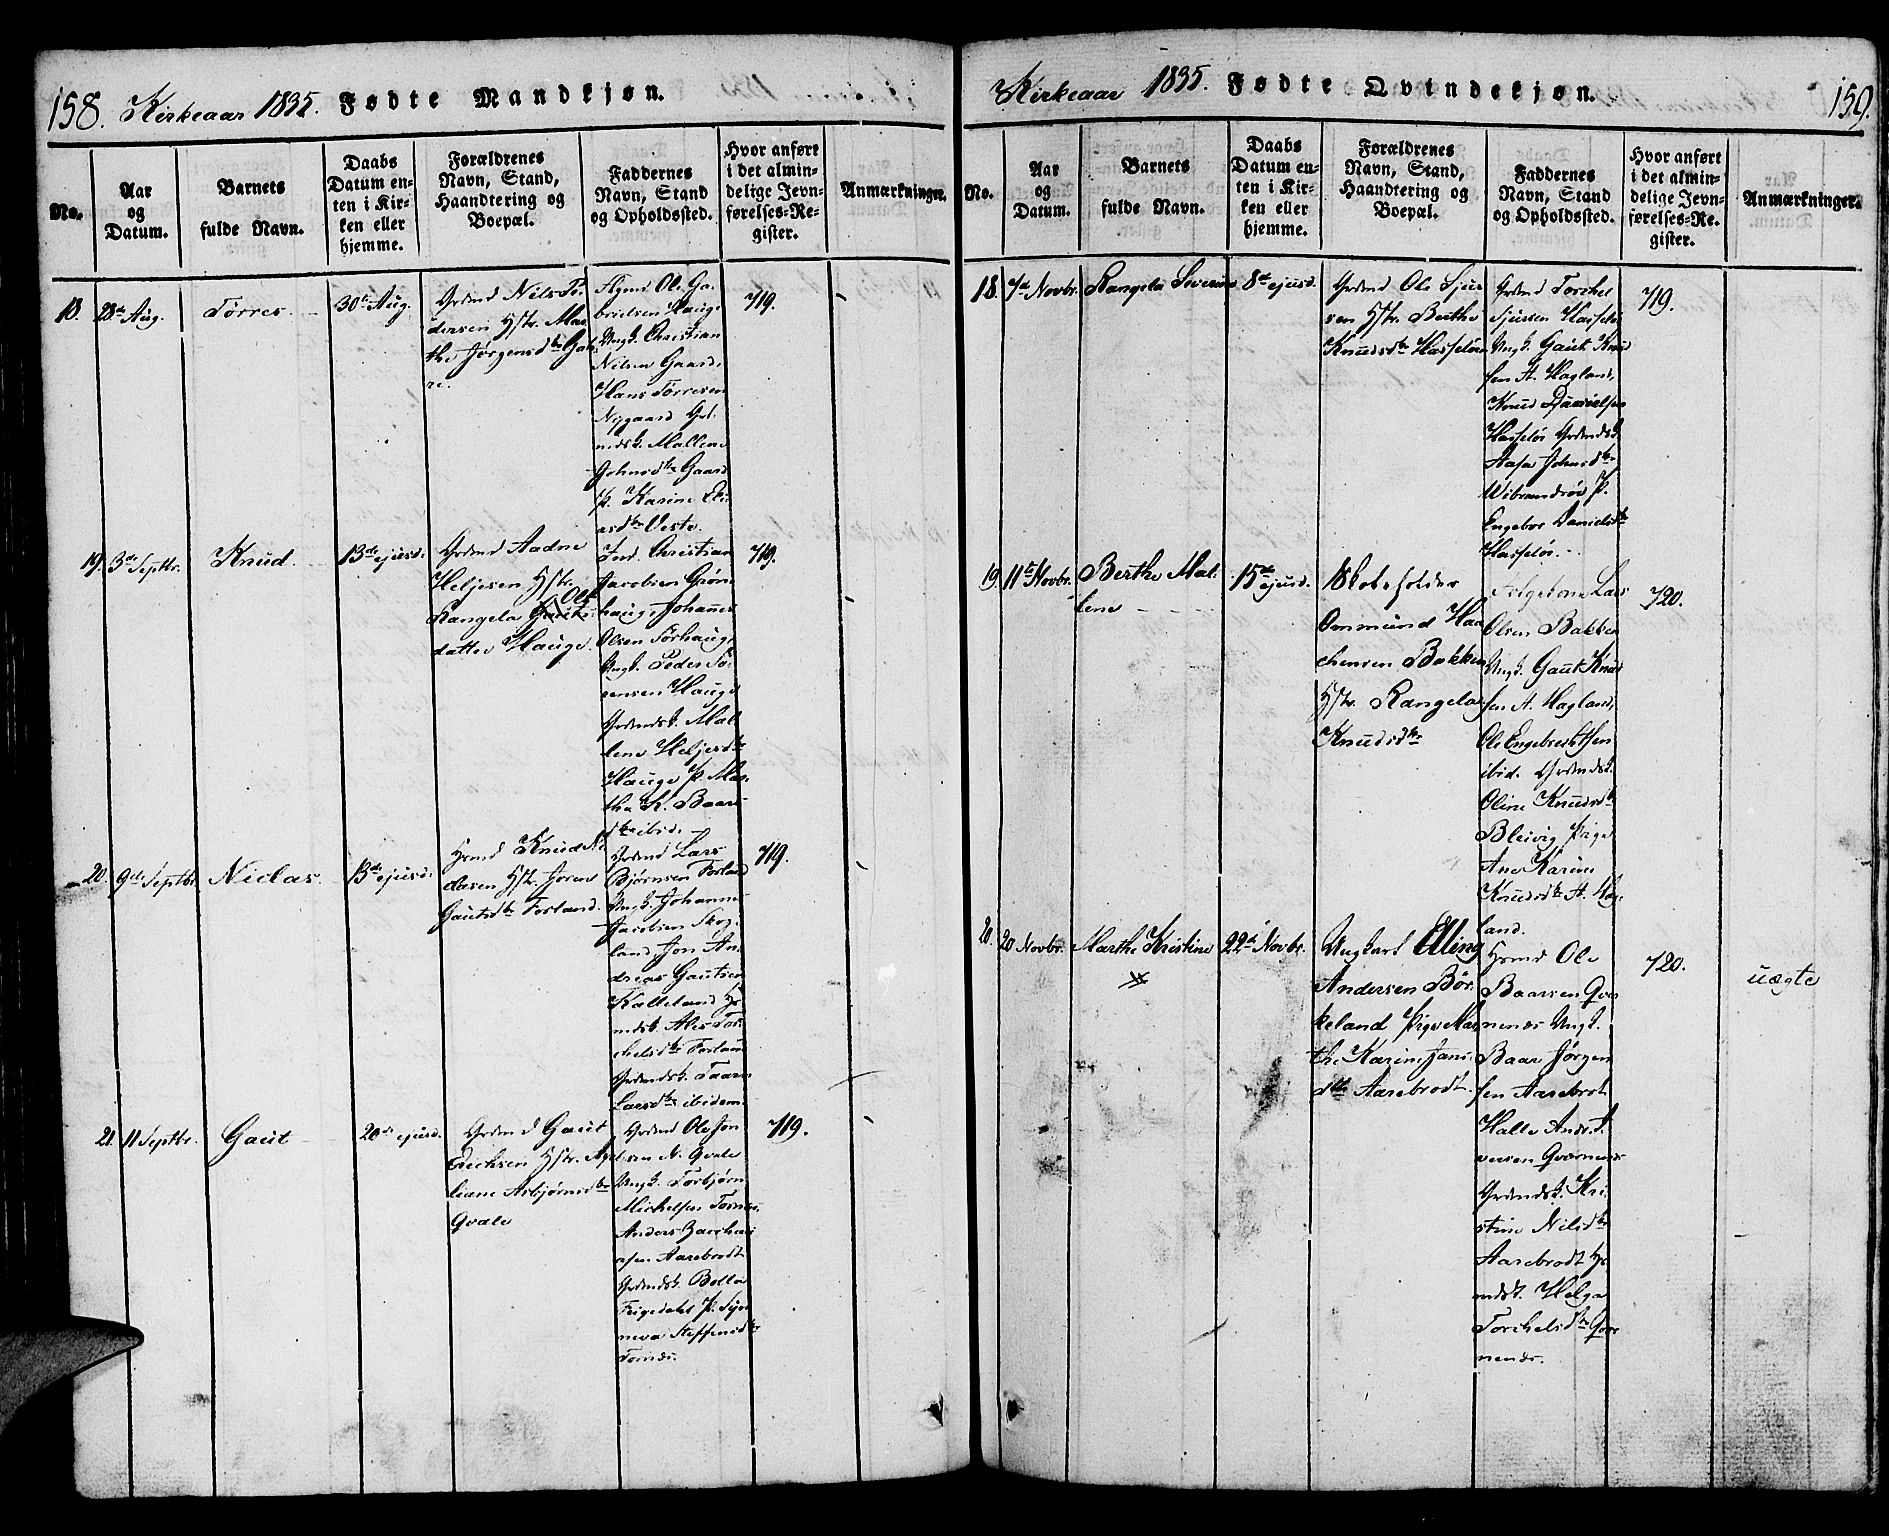 158. Kirkeaar 1835. Fødte Mandkjøn.
No.
Aar
og
Datum.
Barnets
fulde Navn.
Daabs
Datum en-
ten i Kir-
ken eller
hjemme.
Forældrenes
Navn, Stand,
Haandtering og
Boepæl.
Faddernes
Navn, Stand
og Opholdssted.
Hvor anført
i det almin-
delige Jevn-
førelses-Re-
gister.
Anmærkninger.
18.
28de Aug.
Torres
30te Aug.
Nils Pe
dersen Hstr. Mar
the Jørgensdtr
Ole Ga
brielsen Hauge
Ungk. Christian
Nilsen Gaard,
Hans Torresen
Nygaard
Mallene
Johnsdtr Gaard
P. Karine Eli
asdtr Veste.
719.
19.
3de Septbr.
Knud
13de ejusd.
Grdmd Aadne
Heljesen Hstr.
Rangela
datter Hauge.
Christian
Jacobsen Grøn
haug, Johannes
Olsen Tørhaug,
Ungk. Peder
Hauge
Grdmdsk. Mal
lene Heljesdtr
Hauge P. Mar
tha K. Baars
dtr ibid.
719.
20.
9de Septbr.
Niclas
13de ejusd.
Hsmd Knud Ni
clasen Hstr. Joren
Gautsdtr Forland.
Grdmd Lars
Bjørnsen Forland
Ungk. Johannes
Jacobsen Skog
land, Jon An
dreas Gautsen
Kalleland Hs
mdsk. Ales Tor
chelsdtr Forland
Grdmdsk. Taaran
Larsdtr ibidem.
719.
21.
11 Septbr.
Gaut
20de ejusd.
Grdmd Gaut
Erichsen Hstr.
liane Asbjørnsdtr
Qvale
Grdmd Ole Jon
sen N. Qvale
Ungk. Torbjørn
Michelsen Tornes
Anders Zacchari
asen Aarebrodt
Grdmdsk. Bolla
P. Syn
neva Steffensdtr
Tornes.
719.
Kirkeaar 1835. Fødte Qvindekjøn.
159.
No.
Aar
og
Datum.
Barnets
fulde Navn.
Daabs
Datum en-
ten i Kir-
ken eller
hjemme.
Forældrenes
Navn, Stand,
Haandtering og
Boepæl.
Faddernes
Navn, Stand
og Opholdssted.
Hvor anført
i det almin-
delige Jevn-
førelses-Re-
gister.
Anmærkninger.
18.
7de Novbr.
Rangela Severine
8de ejusd.
Grdmd Ole Sjur
sen Hstr. Berthe
Knudsdtr Hasseløe
Grdmd Torchel
Sjursen Hasseløe
Ungk. Gaut Knud
sen A. Hagland,
Knud Danielsen
Hasseløe Grdmdsk.
Aasa Johnsdtr
Wibrandsøe P.
Engebor Danielsdtr
Hasseløe.
719.
19.
11te Novbr.
Berthe Mal
lene
15de ejusd.
Ommund Haa
chensen Bakken
Hstr. Rangela
Knudsdtr
Lars
Olsen Bakken
Ungk. Gaut Knud
sen A. Hagland,
Ole Engebrethsen
ibid. Grdmdsk.
Oline Knudsdtr
Bleivig Pige
Ane Karine
Knudsdtr A. Hag
land.
720.
20.
20 Novbr.
Marthe Kristine
22de Novbr.
Ungkarl Elling
Andersen Bør
keland Pige Mar
the Karine Jans
dtr Aarebrodt.
Hsmd Ole
Baarsen Qver
nenæs Ungk.
Baar Jørgen
sen Aarebrot
Halle
versen Qvernenes
Grdmdsk. Kri
stine Nilsdtr
Aarebrodt Hs
mdsk. Helga
Torchelsdtr Qver
nenæs.
720.
uægte